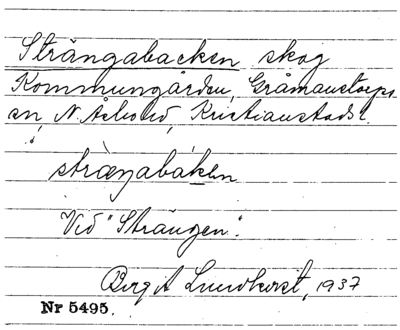 Strängabacken skog
Kommungården, Gråmanstorps
sn, N. Åsbo hd, Kristianstads l.
stràŋabáken
Vid "Strängen".
Birgit Lundkvist, 1937
Nr 5495.